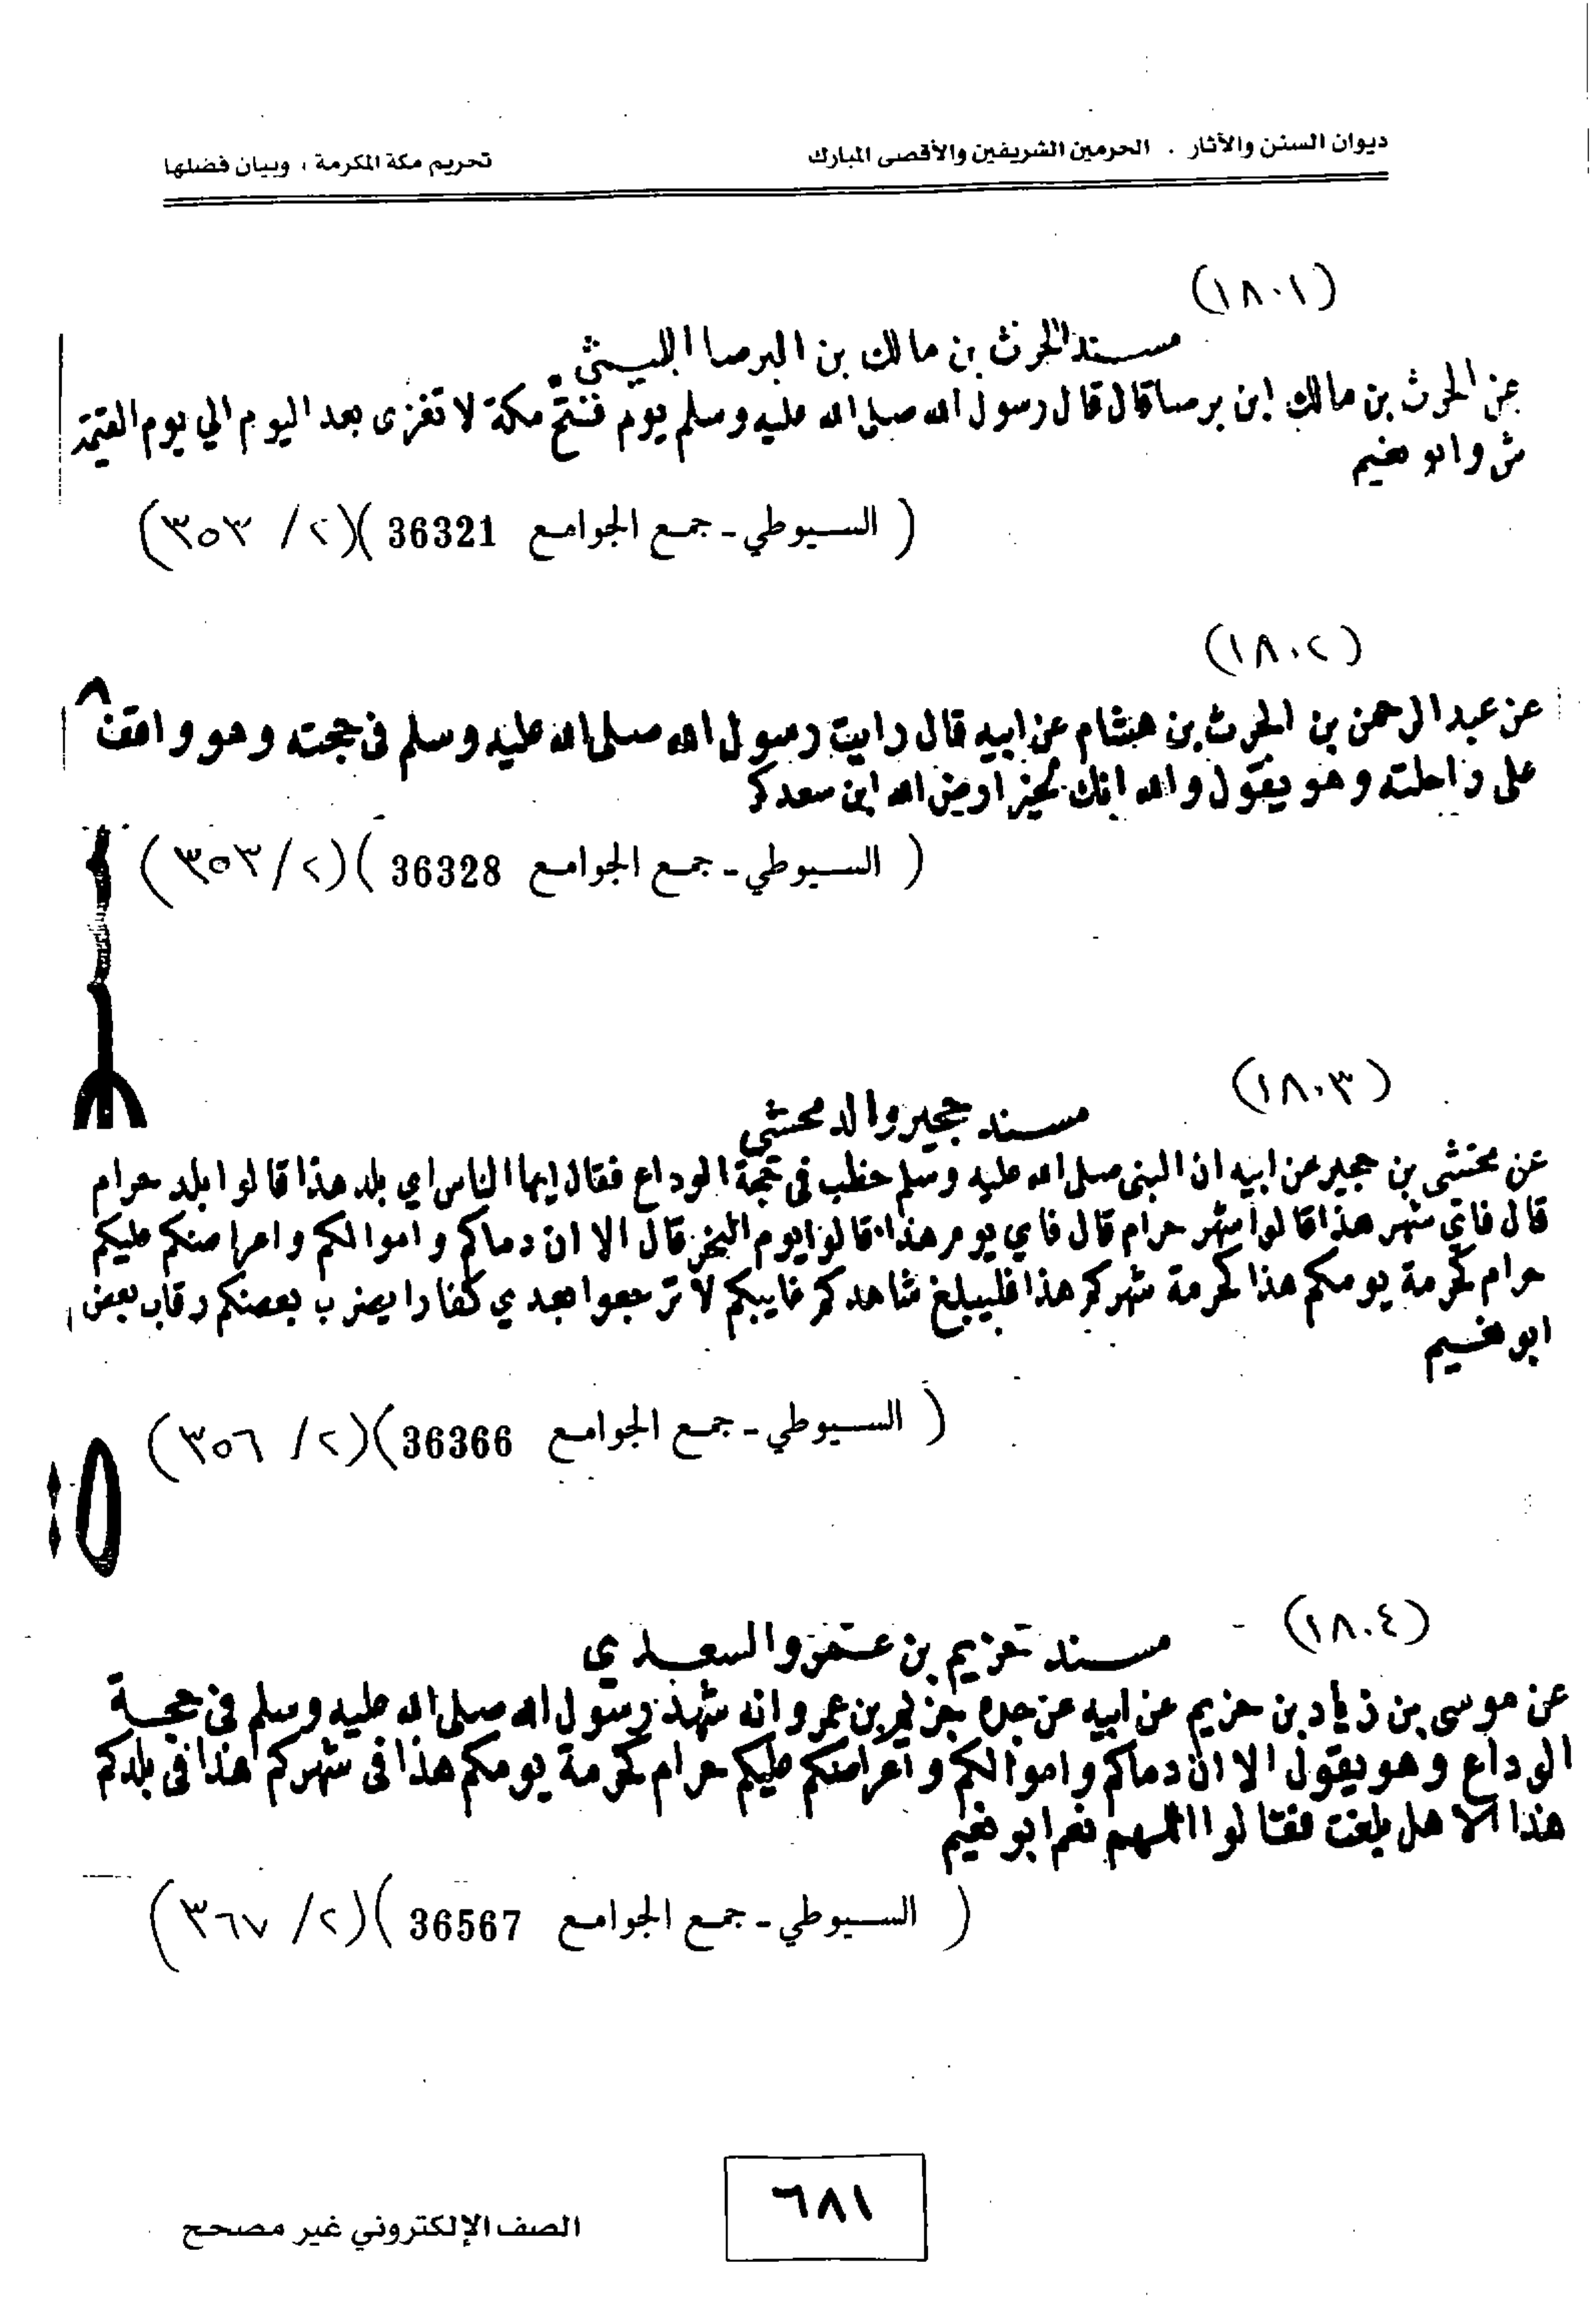 ديوان السنن والآثار . الحرمين الشريفين والأقصى المبارك
تحريم مكة المكرمة ، وبيان فضلها
(١٨٠١)
مسند الحرث بن مالك بن البرصا الليثي
عن الحرث بن مالك ابن برصا قال قال رسول الله صلى الله عليه وسلم يوم فتح مكة لا تغزى بعد اليوم الي يوم القيمة
ش وابو نعيم
( السيوطي - جمع الجوامع 36321 )(٢/ ٣٥٣)
(١٨٠٢)
عن عبد الرحمن بن الحرث بن هشام عن ابيه قال رايت رسول الله صلى الله عليه وسلم في حجته وهو واقف
على راحلته وهو يقول والله انك لخير ارض الله ابن سعد كر
( السيوطي - جمع الجوامع 36328 )(٢/ ٣٥٣)
(١٨٠٣)
مسند حجير والد مخشي
عن مخشي بن حجير عن ابيه ان النبي صلى الله عليه وسلم خطب في حجة الوداع فقال ايها الناس اي بلد هذا قالوا بلد حرام
قال فاي شهر هذا قالوا شهر حرام قال فاي يوم هذا قالوا يوم النحر قال الا ان دماكم واموالكم واعراضكم عليكم
حرام كحرمة يومكم هذا كحرمة شهركم هذا فليبلغ شاهدكم غايبكم لا ترجعوا بعدي كفارا يضرب بعضكم رقاب بعض
ابو نعيم
( السيوطي - جمع الجوامع 36366 )(٢/ ٣٥٦)
(١٨٠٤)
مسند حزيم بن عمرو السعدي
عن موسى بن زياد بن حزيم عن ابيه عن جده حزيم بن عمرو انه شهد رسول الله صلى الله عليه وسلم في حجة
الوداع وهو يقول الا ان دماكم واموالكم واعراضكم عليكم حرام كحرمة يومكم هذا في شهركم هذا في بلدكم
هذا الا هل بلغت فقالوا اللهم نعم ابو نعيم
( السيوطي - جمع الجوامع 36567 )(٢/ ٣٦٧)
٦٨١
الصف الإلكتروني غير مصحح